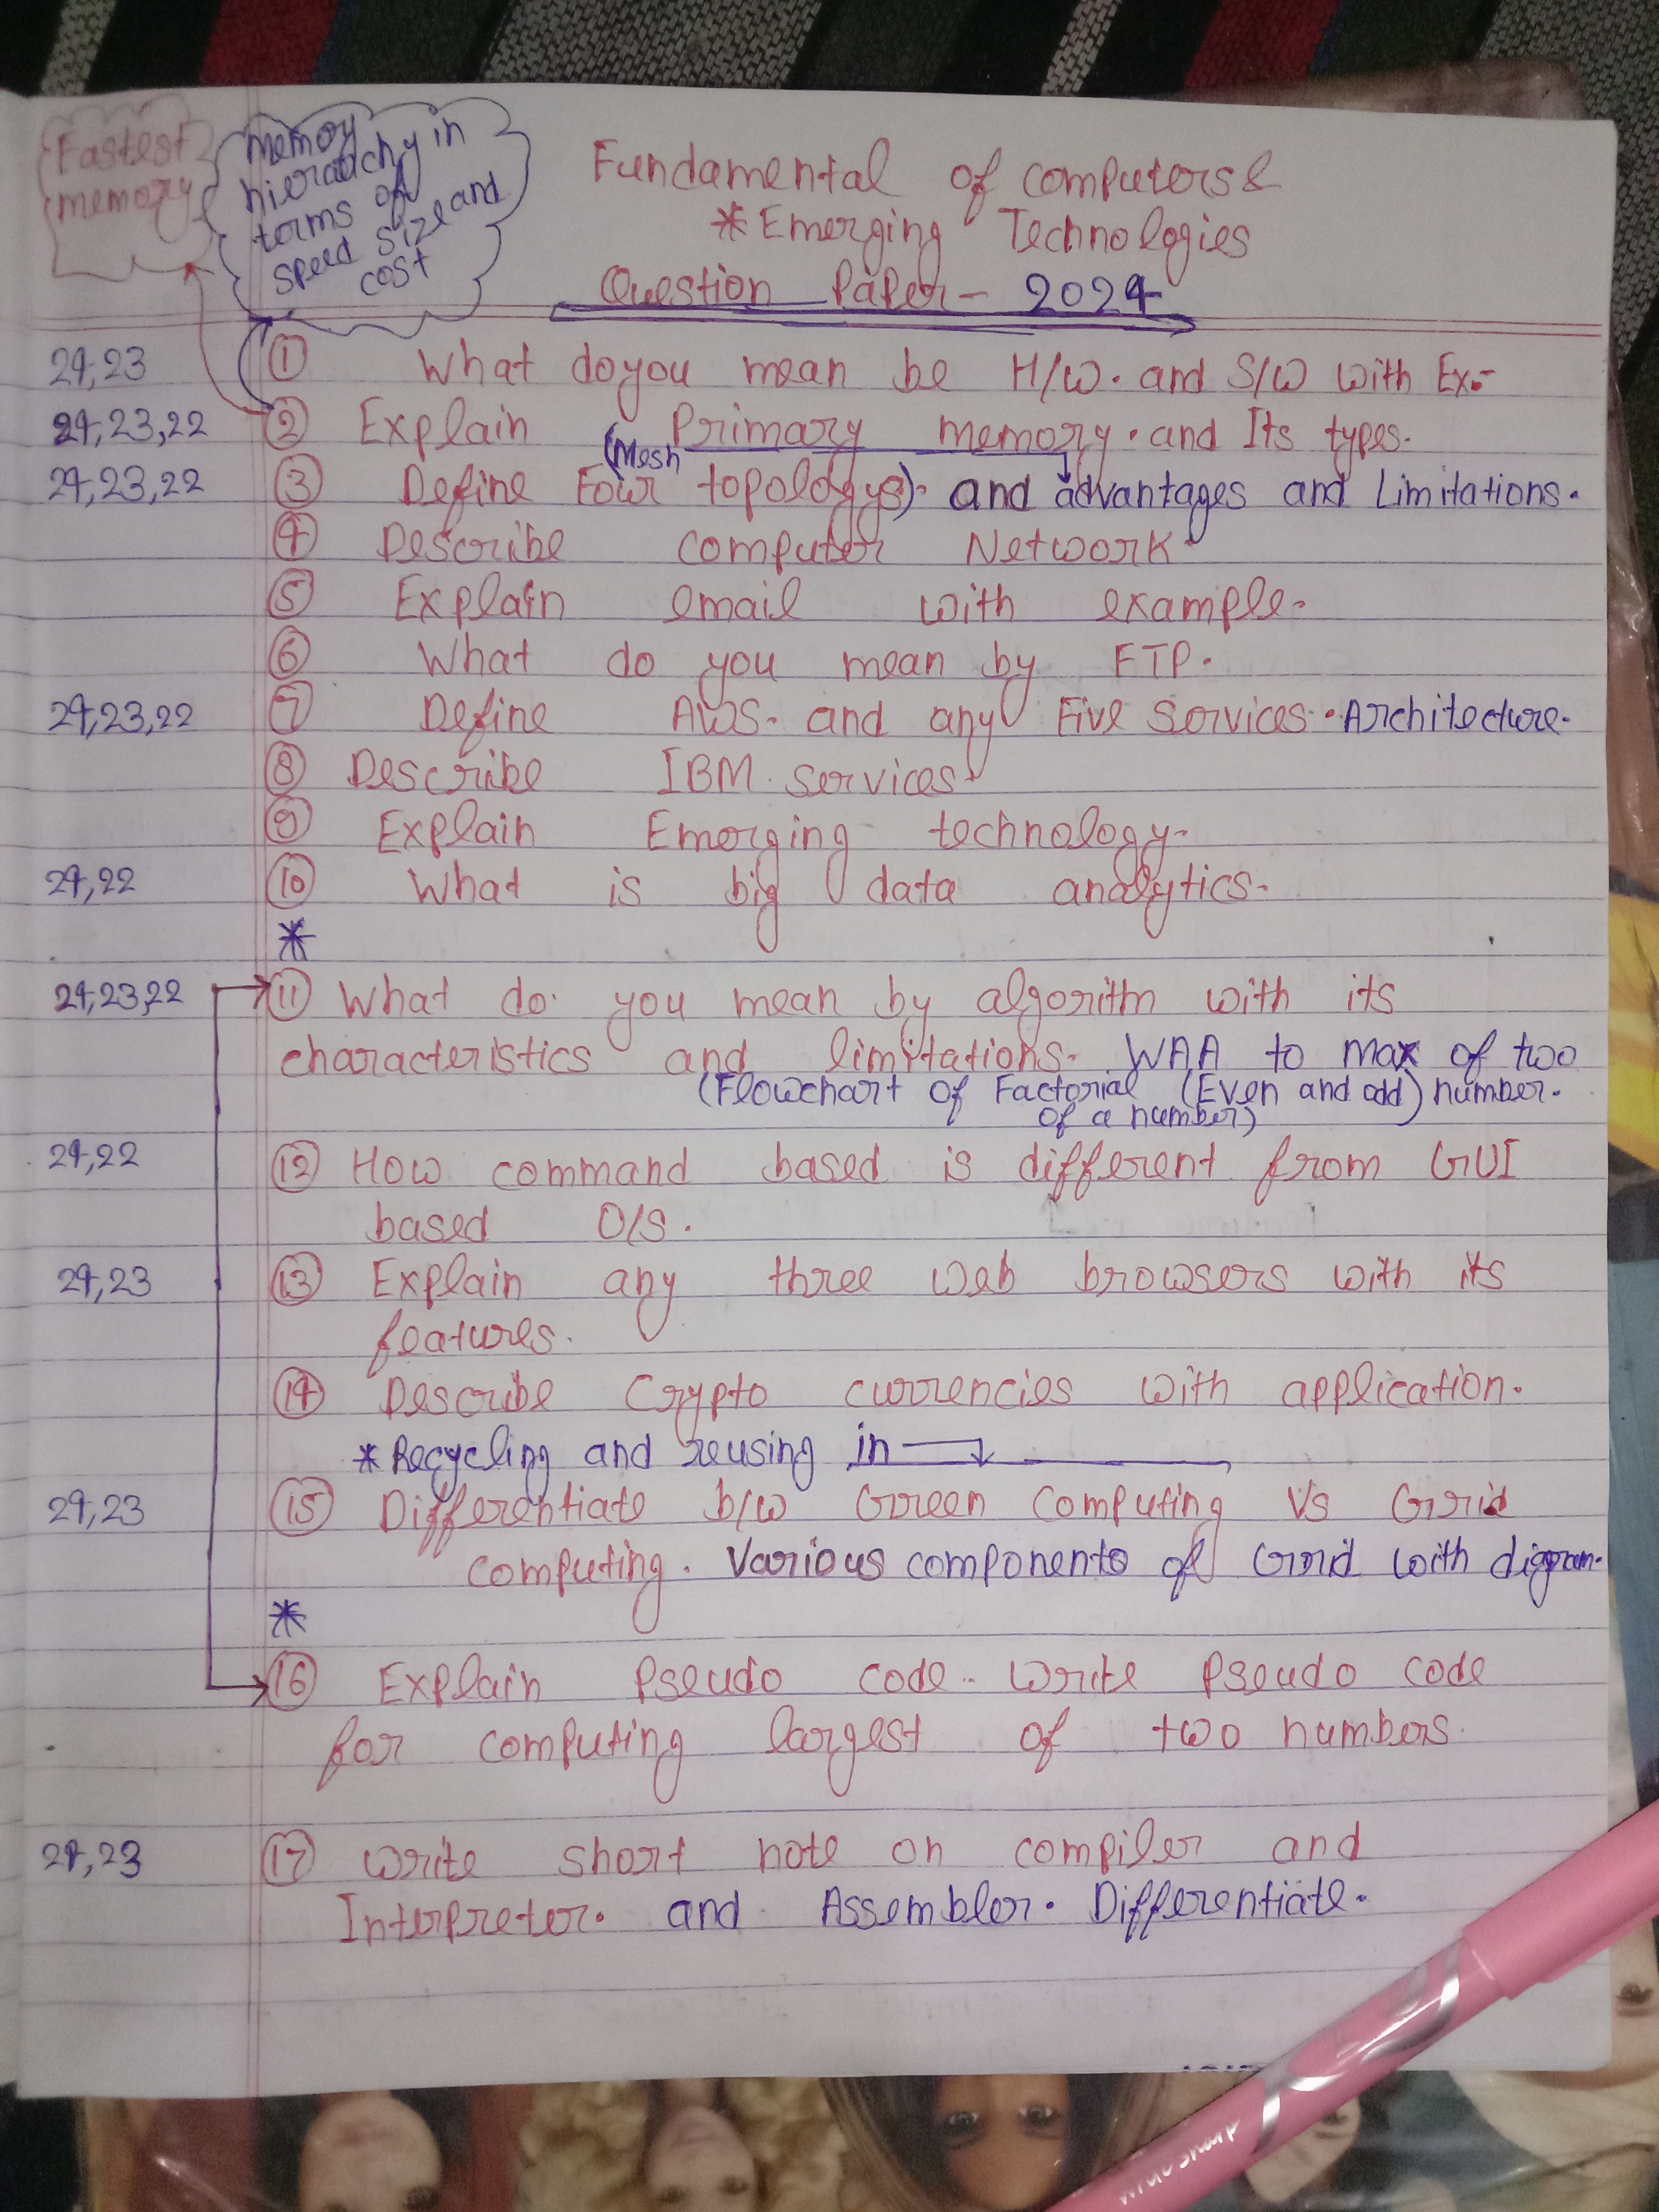 Fastest
memory
memory
hierachy in
terms of
speed size and
cost
Fundamental of computers &
* Emerging Technologies
Question Paper - 2024
24,23 ① What do you mean be H/W. and S/W with Ex:-
24,23,22 ② Explain Primary memory. and Its types.
(Mesh
24,23,22 ③ Define Four topologys). and advantages and Limitations.
④ Describe computer Network
⑤ Explain email with example.
⑥ What do you mean by FTP.
24,23,22 ⑦ Define AWS. and any Five Services. Architecture.
⑧ Describe IBM services
⑨ Explain Emerging technology.
24,22 ⑩ What is big data analytics.
*
24,23,22 ⑪ What do you mean by algorithm with its
characteristics and limitations. WAA to max of two
(Flowchart of Factorial (Even and odd) number.
of a number)
24,22 ⑫ How command based is different from GUI
based O/S.
24,23 ⑬ Explain any three web browsers with its
features.
⑭ Describe Crypto currencies with application.
* Recycling and reusing in
24,23 ⑮ Differentiate b/w Green Computing Vs Grid
computing. Various components of Grid with digram.
*
⑯ Explain Pseudo code. Write Pseudo code
for computing largest of two numbers.
24,23 ⑰ Write short note on compiler and
Interpreter. and Assembler. Differentiate.